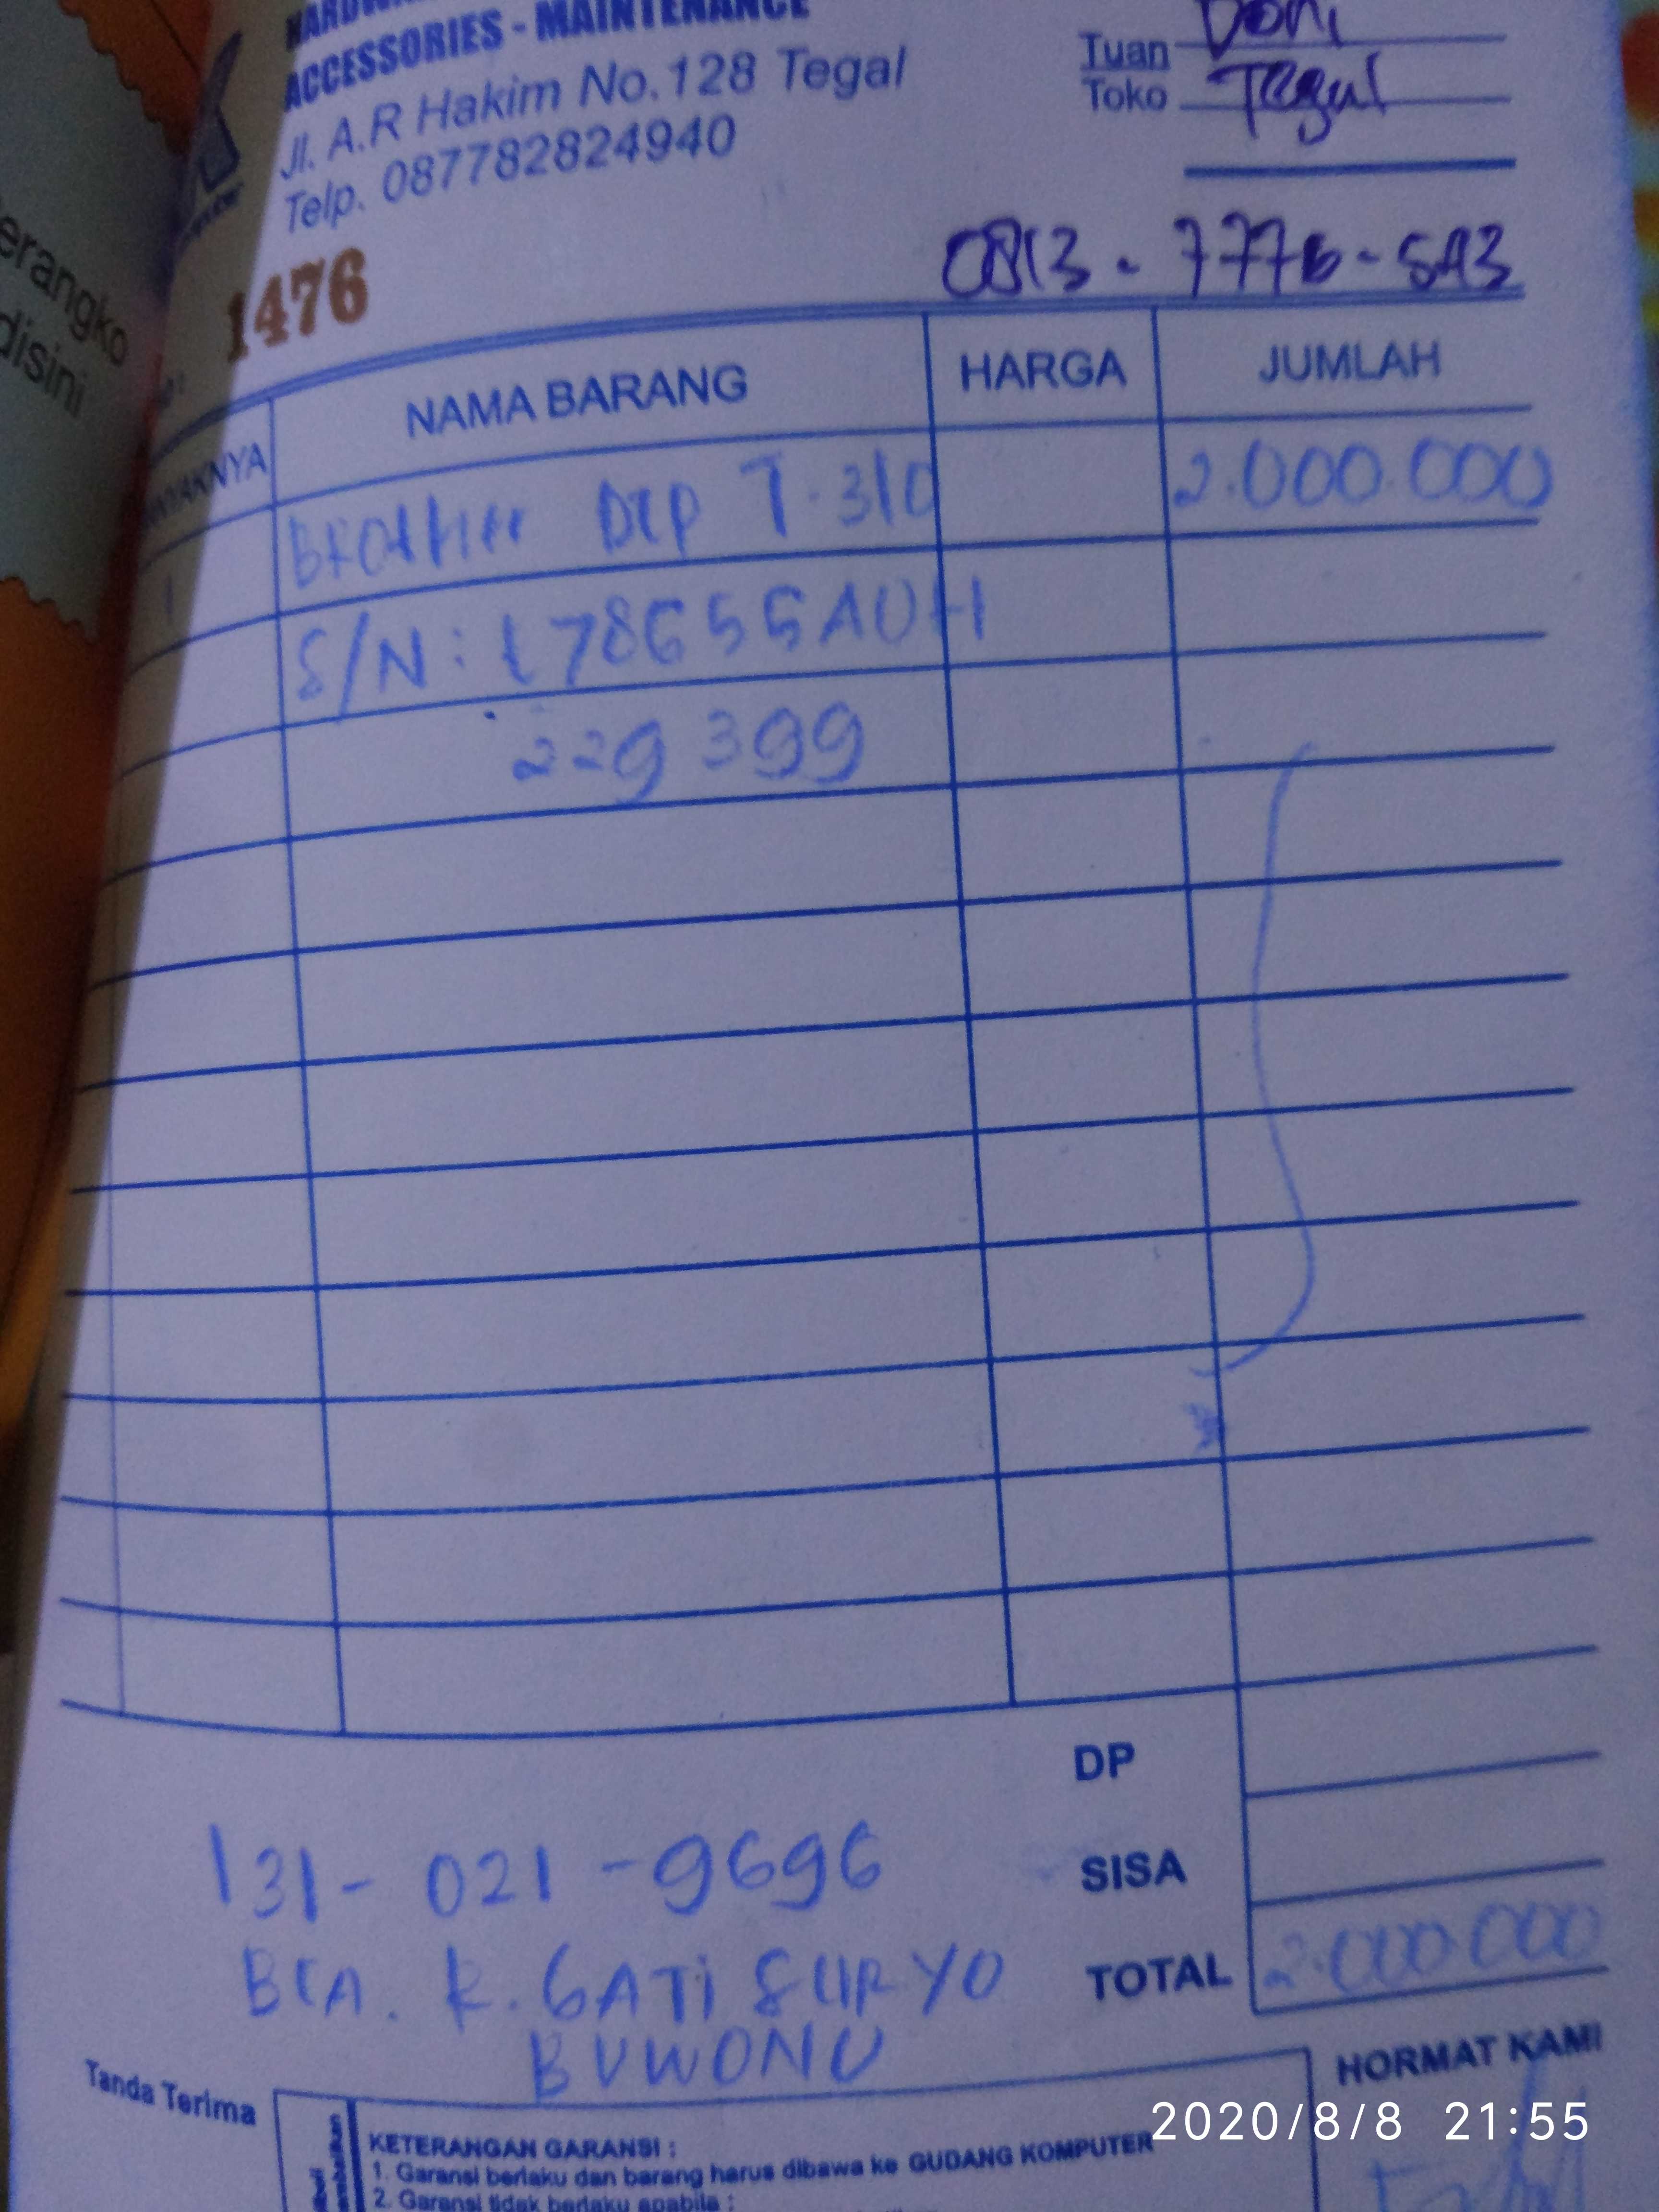 ACCESSORIES - MAINTENANCE
Jl. A.R Hakim No.128 Tegal
Telp. 087782824940
Tuan Doni
Toko Tegal
1476
erangko
disini
NAMA BARANG HARGA JUMLAH
1 Brother DCP T-310 2.000.000
S/N:
229399
DP
131-021-9696 SISA
BCA. R. GATI SURYO TOTAL 2.000.000
BUWONO
Tanda Terima HORMAT KAMI
KETERANGAN GARANSI :
1. Garansi berlaku dan barang harus dibawa ke GUDANG KOMPUTER
2. Garansi tidak berlaku apabila :
2020/8/8 21:55